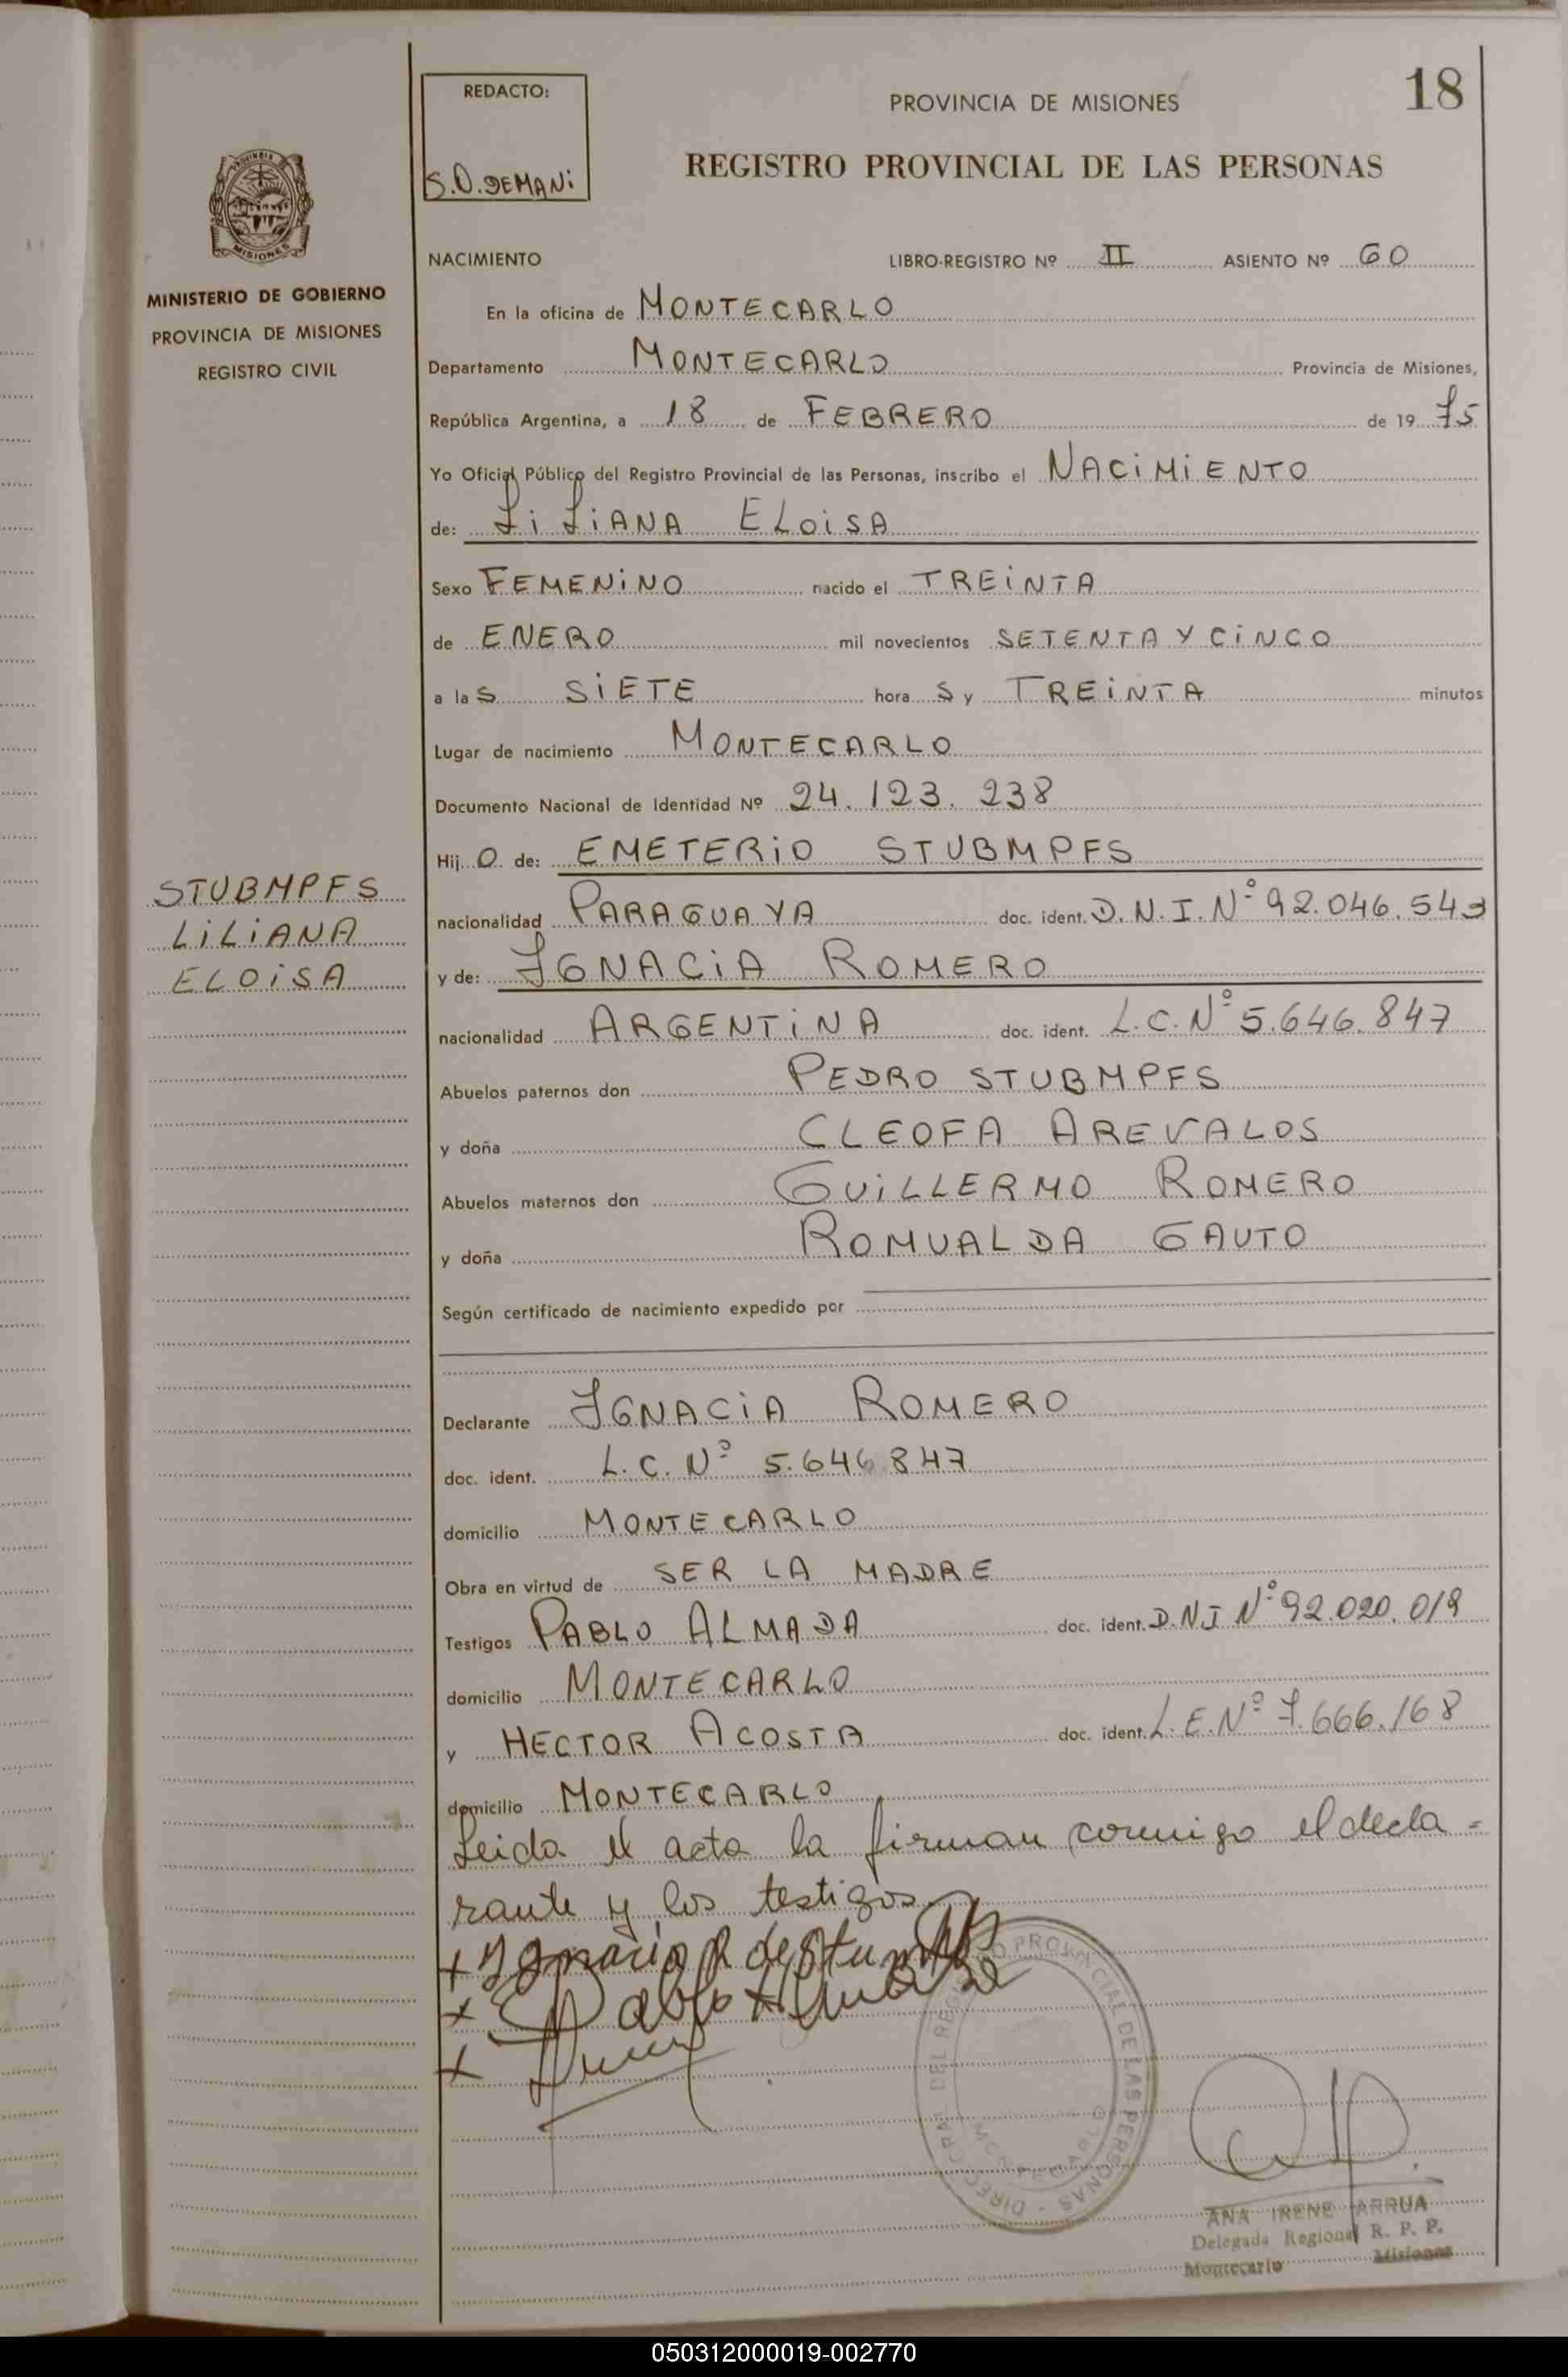 REDACTO:
S.D. DEMANi
PROVINCIA DE MISIONES
18
REGISTRO PROVINCIAL DE LAS PERSONAS
MISIONES
MINISTERIO DE GOBIERNO
PROVINCIA DE MISIONES
REGISTRO CIVIL
NACIMIENTO LIBRO-REGISTRO Nº II ASIENTO Nº 60
En la oficina de MONTECARLO
Departamento MONTECARLO Provincia de Misiones,
República Argentina, a 18 de FEBRERO de 19 75
Yo Oficial Público del Registro Provincial de las Personas, inscribo el NACIMIENTO
de: LiLiANA ELOiSA
Sexo FEMENiNO nacido el TREiNTA
de ENERO mil novecientos SETENTA Y CiNCO
a las SiETE horas y TREiNTA minutos
Lugar de nacimiento MONTECARLO
Documento Nacional de Identidad Nº 24.123.238
Hijo de: EMETERiO STUBMPFS
STUBMPFS
LiLiANA
ELOiSA
nacionalidad PARAGUAYA doc. ident. D.N.I. Nº 92.046.543
y de: IGNACiA ROMERO
nacionalidad ARGENTiNA doc. ident. L.C. Nº 5.646.847
Abuelos paternos don PEDRO STUBMPFS
y doña CLEOFA AREVALOS
Abuelos maternos don GUiLLERMO ROMERO
y doña ROMUALDA GAUTO
Según certificado de nacimiento expedido por
Declarante IGNACiA ROMERO
doc. ident. L.C. Nº 5.646.847
domicilio MONTECARLO
Obra en virtud de SER LA MADRE
Testigos PABLO ALMADA doc. ident. D.N.I Nº 92.020.019
domicilio MONTECARLO
y HECTOR ACOSTA doc. ident. L.E. Nº 7.666.168
domicilio MONTECARLO
Leida el acta la firman conmigo el decla=
rante y los testigos
+ Ignacia R de
+ Pablo Almada
+
DIREC. GRAL. DEL REGISTRO PROVINCIAL DE LAS PERSONAS - MONTECARLO
ANA IRENE ARRUA
Delegada Regional R. P. P.
Montecarlo Misiones
050312000019-002770